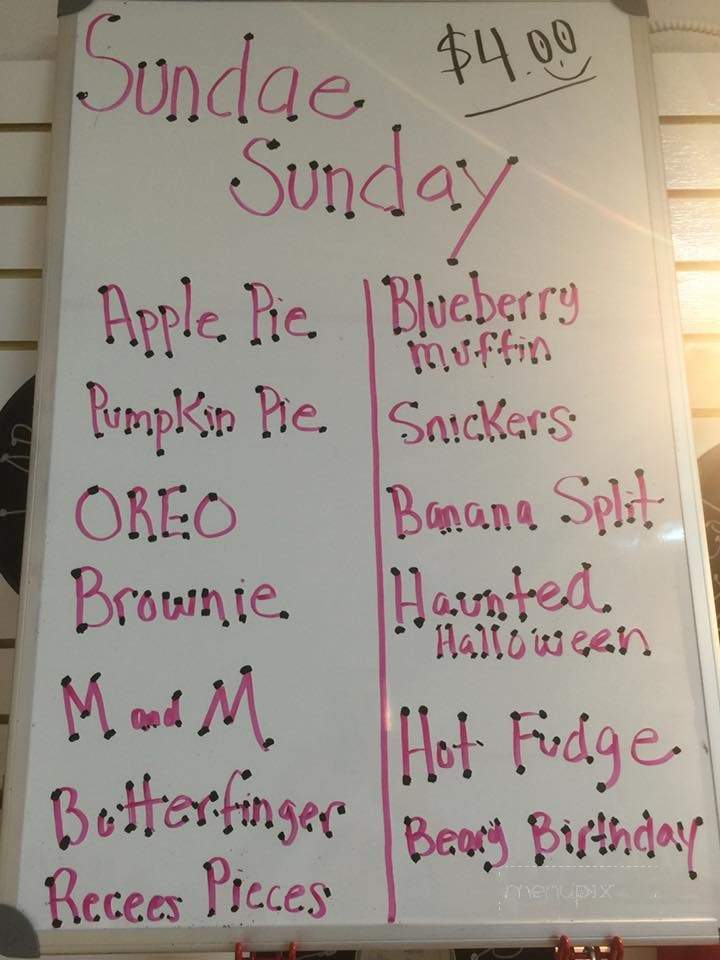 Sundae
$4.00
Sunday
Apple Pie
Pumpkin Pie
OREO
Brownie
M and M
Butterfinger
Recees Pieces
Blueberry
muffin
Snickers
Banana Split
Haunted
Halloween
Hot Fudge
Beary Birthday
menupix